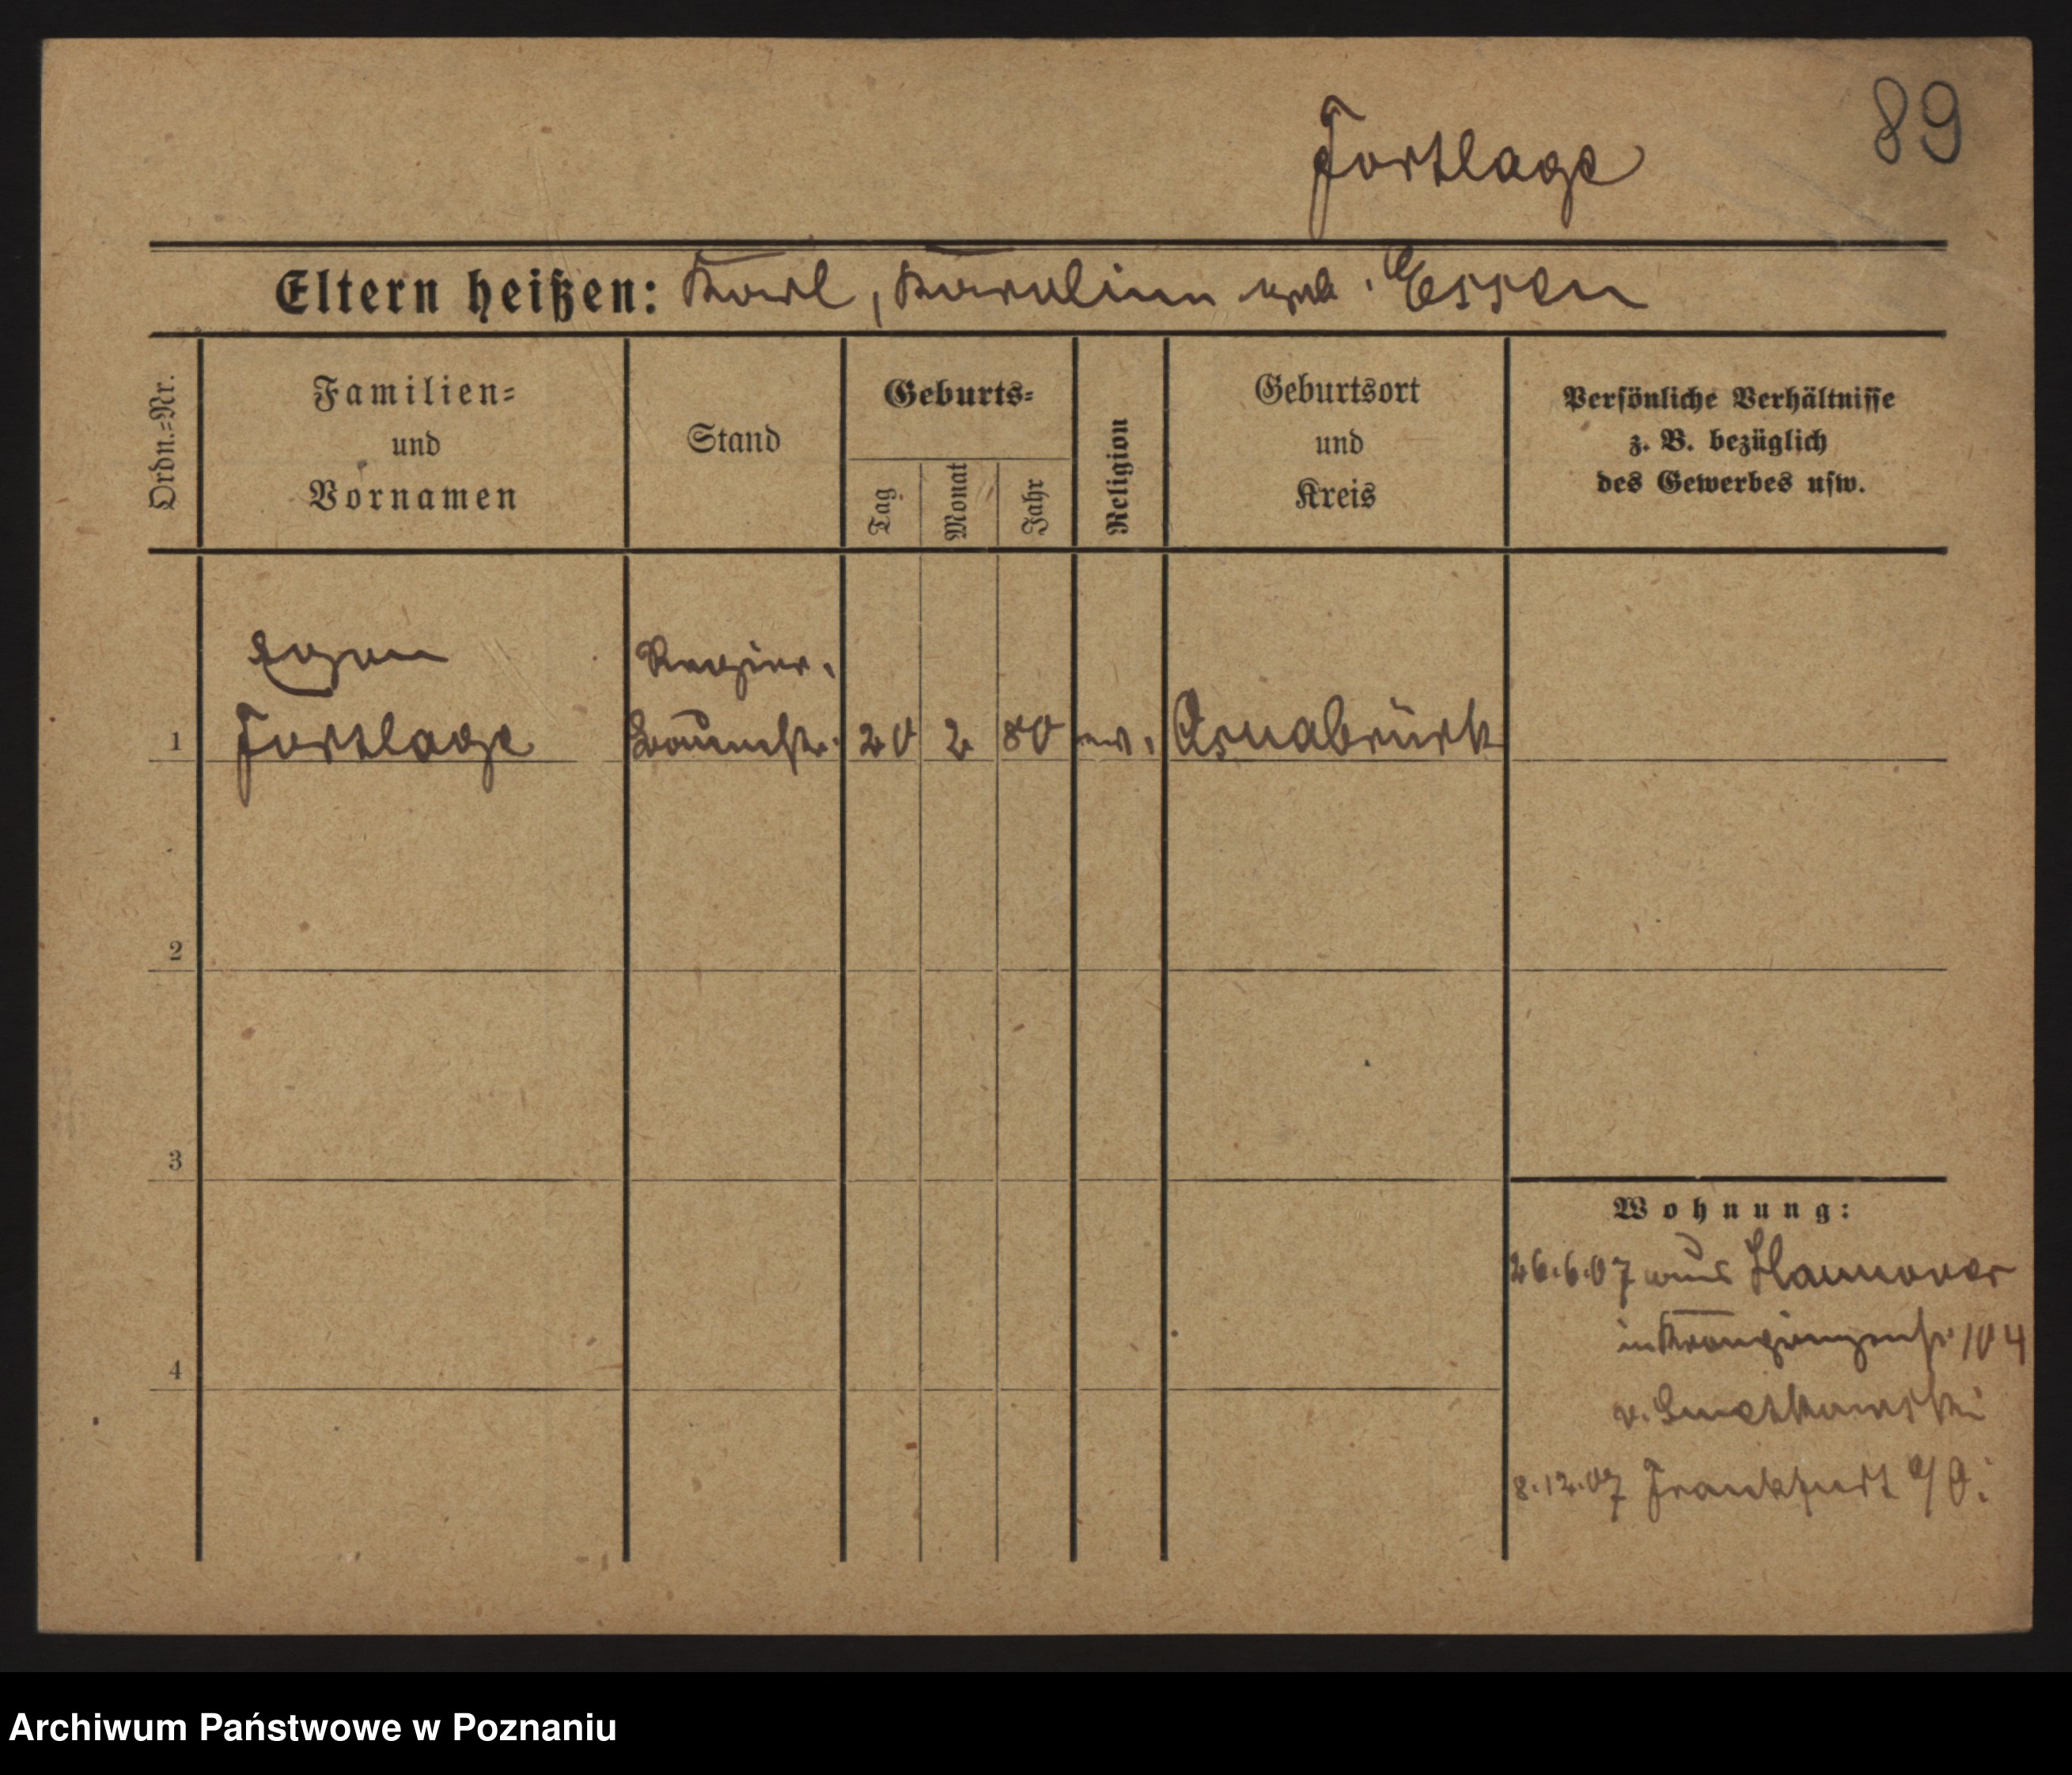 89
Fortlage
Eltern heißen: Karl, Karoline geb. Essen
Ordn.-Nr.
Familien-
und
Vornamen
Stand
Geburts-
Tag
Monat
Jahr
Religion
Geburtsort
und
Kreis
Persönliche Verhältnisse
z. B. bezüglich
des Gewerbes usw.
Egon Regier.
1 Fortlage Baumstr. 20 2 80 ev. Osnabrück
2
3
4
Wohnung:
26.6.07 aus Hannover
in Kronprinzenstr 104
v.
8.12.07 Frankfurt a/O.
Archiwum Państwowe w Poznaniu